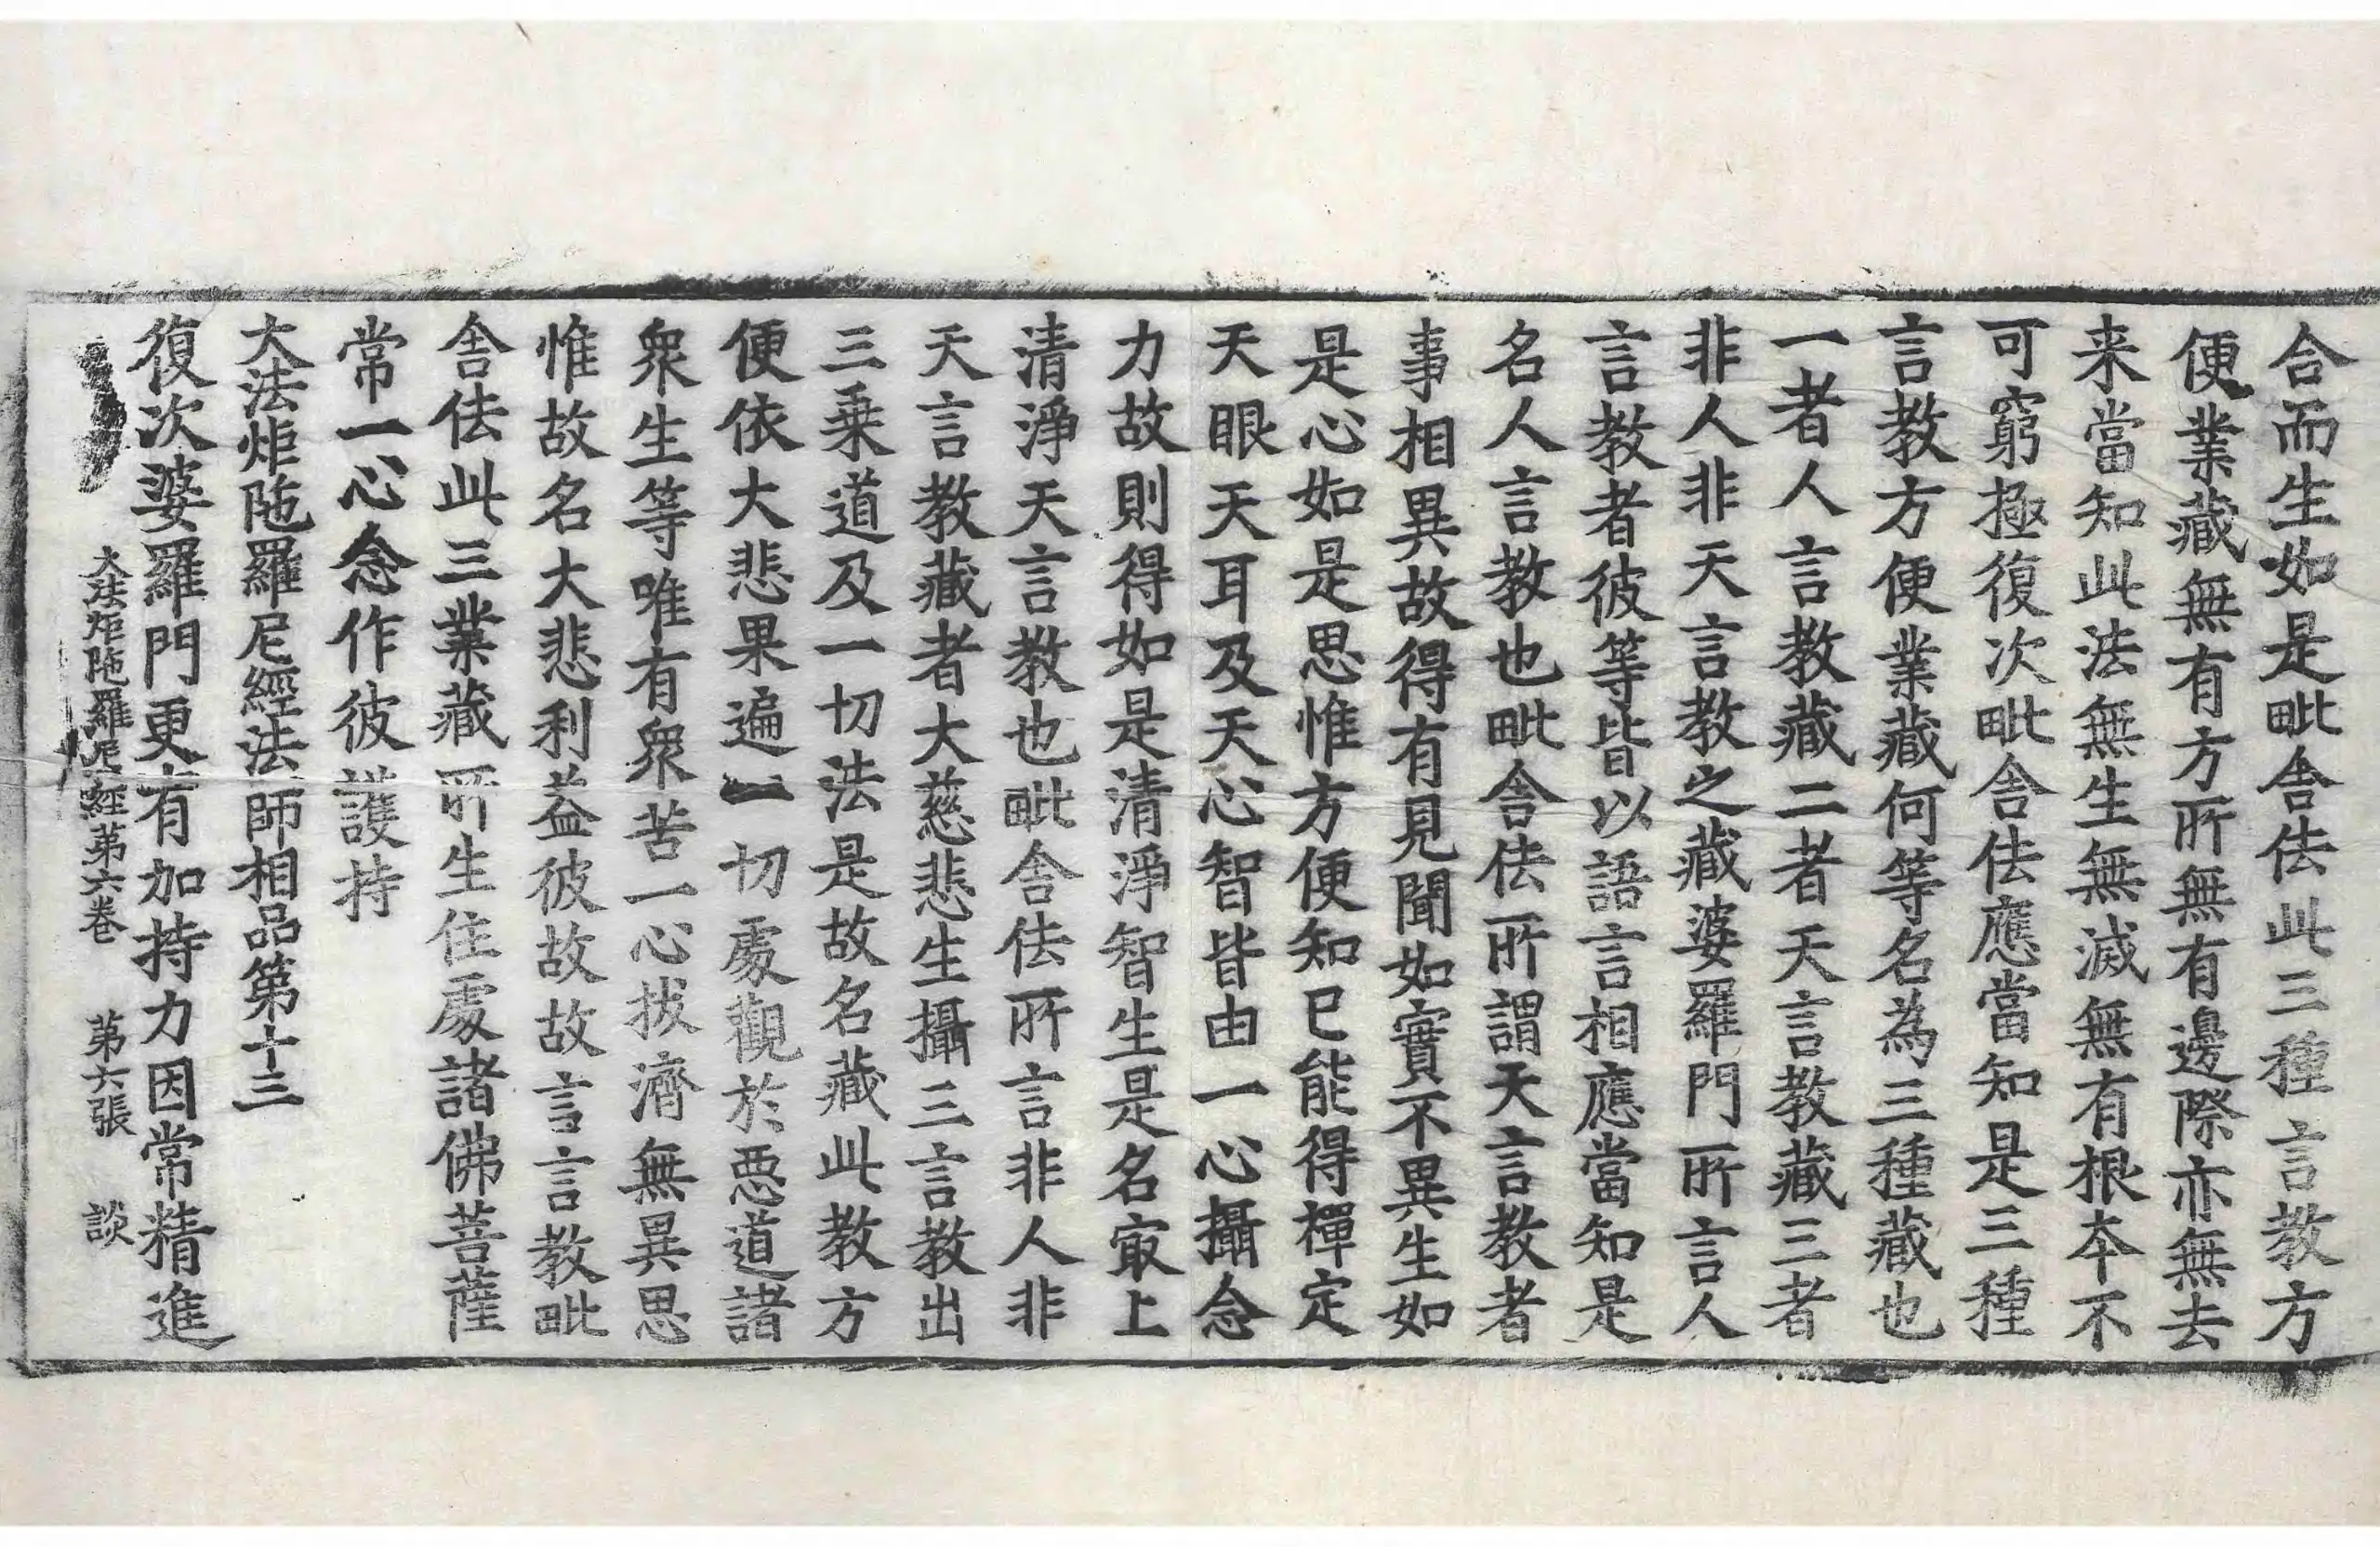 合而生如是毗舍佉此三種言教方
便業藏無有方所無有邊際亦無去
来當知此法無生無滅無有根本不
可窮極復次毗舍佉應當知是三種
言教方便業藏何等名為三種藏也
一者人言教藏二者天言教藏三者
非人非天言教之藏婆羅門所言人
言教者彼等皆以語言相應當知是
名人言教也毗舍佉所謂天言教者
事相異故得有見聞如實不異生如
是心如是思惟方便知已能得禪定
天眼天耳及天心智皆由一心攝念
力故則得如是清淨智生是名冣上
清淨天言教也毗舍佉所言非人非
天言教藏者大慈悲生攝三言教出
三乗道及一切法是故名藏此教方
便依大悲果遍一切處觀於惡道諸
衆生等唯有衆苦一心拔濟無異思
惟故名大悲利益彼故故言言教毗
舍佉此三業藏所生住處諸佛菩薩
常一心念作彼護持
大法炬陁羅尼經法師相品第十三
復次婆羅門更有加持力因常精進
大法炬陁羅尼經第六卷 第六張 談